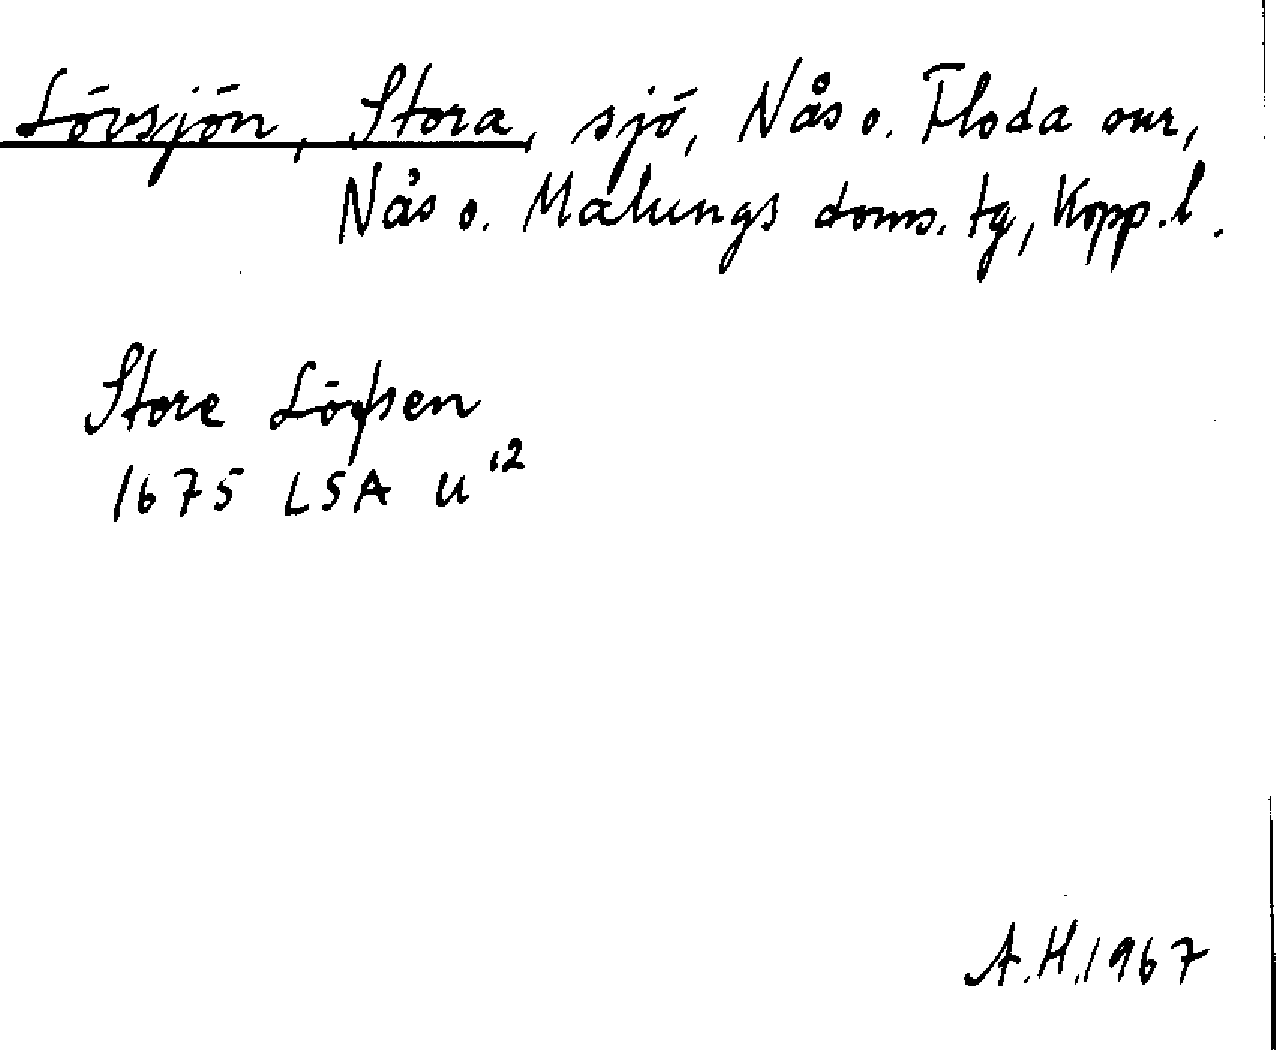 Lövsjön, Stora, sjö, Nås o. Floda snr,
Nås o. Malungs doms. tg, Kopp. l.
Store Löfsen
1675 LSA U¹²
A.H. 1967